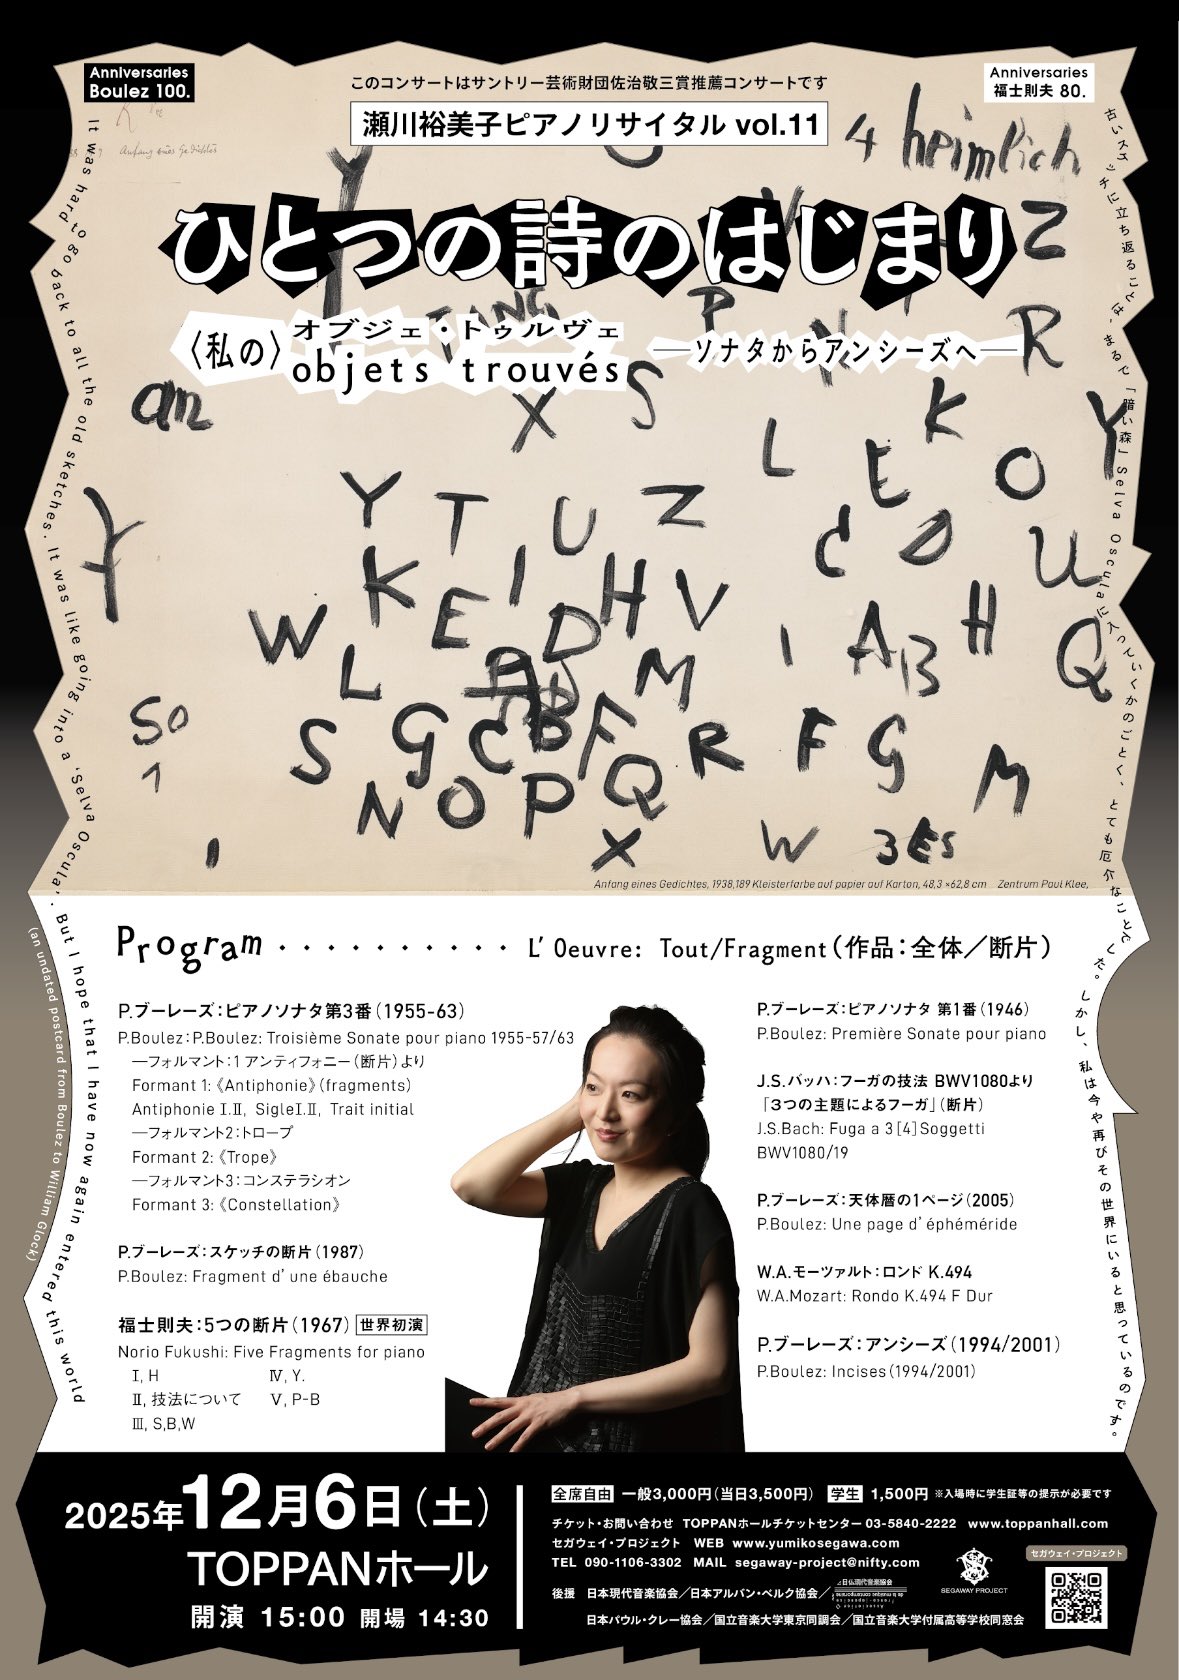 Anniversaries
Boulez 100.
このコンサートはサントリー芸術財団佐治敬三賞推薦コンサートです
瀬川裕美子ピアノリサイタル vol.11
Anniversaries
福士則夫 80.
Anfang eines Gedichtes
4 heimlich
ひとつの詩のはじまり
〈私の〉オブジェ・トゥルヴェ
objets trouvés
―ソナタからアンシーズへ―
Z
R
an
X S
L K Y
E O
Y T U Z
C D U
Y
K E I H V
W D
H
I A B Q
L A B M
So
S G C B F R F G
1
N O P Q M
I
X W 3 Es
Anfang eines Gedichtes, 1938,189 Kleisterfarbe auf papier auf Karton, 48,3 ×62,8 cm Zentrum Paul Klee,
It was hard to go back to all the old sketches. It was like going into a ‘Selva Oscula’. But I hope that I have now again entered this world
(an undated postcard from Boulez to William Glock)
古いスケッチに立ち返ることは、まるで「暗い森」Selva Osculaに入っていくかのごとく、とても厄介なことでした。しかし、私は今や再びその世界にいると思っているのです。
Program ・・・・・・・・・・ L’ Oeuvre: Tout/Fragment（作品：全体／断片）
P.ブーレーズ：ピアノソナタ第3番（1955-63）
P.Boulez：P.Boulez: Troisième Sonate pour piano 1955-57/63
―フォルマント：1 アンティフォニー（断片）より
Formant 1:《Antiphonie》（fragments）
Antiphonie I.II, SigleI.II, Trait initial
―フォルマント2：トロープ
Formant 2:《Trope》
―フォルマント3：コンステラシオン
Formant 3:《Constellation》
P.ブーレーズ：スケッチの断片（1987）
P.Boulez: Fragment d’une ébauche
福士則夫：5つの断片（1967） 世界初演
Norio Fukushi: Five Fragments for piano
I, H Ⅳ, Y.
Ⅱ, 技法について Ⅴ, P-B
Ⅲ, S,B,W
P.ブーレーズ：ピアノソナタ 第1番（1946）
P.Boulez: Première Sonate pour piano
J.S.バッハ：フーガの技法 BWV1080より
「3つの主題によるフーガ」（断片）
J.S.Bach: Fuga a 3［4］Soggetti
BWV1080/19
P.ブーレーズ：天体暦の1ページ（2005）
P.Boulez: Une page d’éphéméride
W.A.モーツァルト：ロンド K.494
W.A.Mozart: Rondo K.494 F Dur
P.ブーレーズ：アンシーズ（1994/2001）
P.Boulez: Incises（1994/2001）
2025年12月6日（土）
TOPPANホール
開演 15:00 開場 14:30
全席自由 一般3,000円（当日3,500円） 学生 1,500円 ※入場時に学生証等の提示が必要です
チケット・お問い合わせ TOPPANホールチケットセンター 03-5840-2222 www.toppanhall.com
セガウェイ・プロジェクト WEB www.yumikosegawa.com
TEL 090-1106-3302 MAIL segaway-project@nifty.com
SEGAWAY PROJECT
セガウェイ・プロジェクト
後援 日本現代音楽協会／日本アルバン・ベルク協会／日仏現代音楽協会
日本パウル・クレー協会／国立音楽大学東京同調会／国立音楽大学付属高等学校同窓会